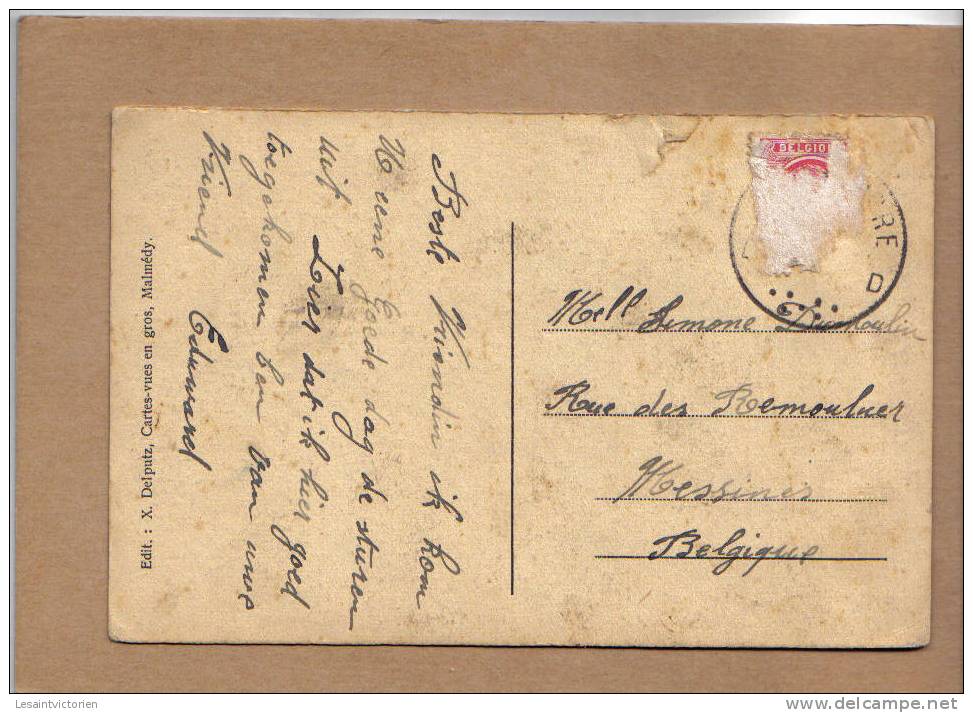 Beste Vriendin ik kom
U eene goede dag de sturen
uit Zoer dat ik hier goed
toegekomen ben van uwe
Vriend Eduward
Edit. : X. Delputz, Cartes-vues en gros, Malmédy.
BELGIQ
RE
D
Mell Simone Dumoulin
Rue des Remouluer
Messines
Belgique
Lesaintvictorien
www.delcampe.net